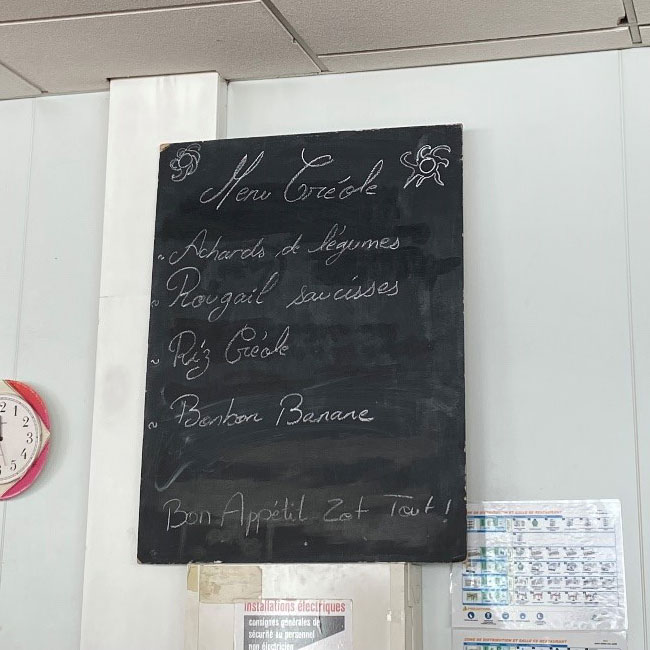 Menu Créole
~ Achards de légumes
~ Rougail saucisses
~ Riz Créole
~ Bonbon Banane
Bon Appétit Zot Tout !
12
1
2
3
4
5
installations électriques
consignes générales de
sécurité au personnel
non électricien